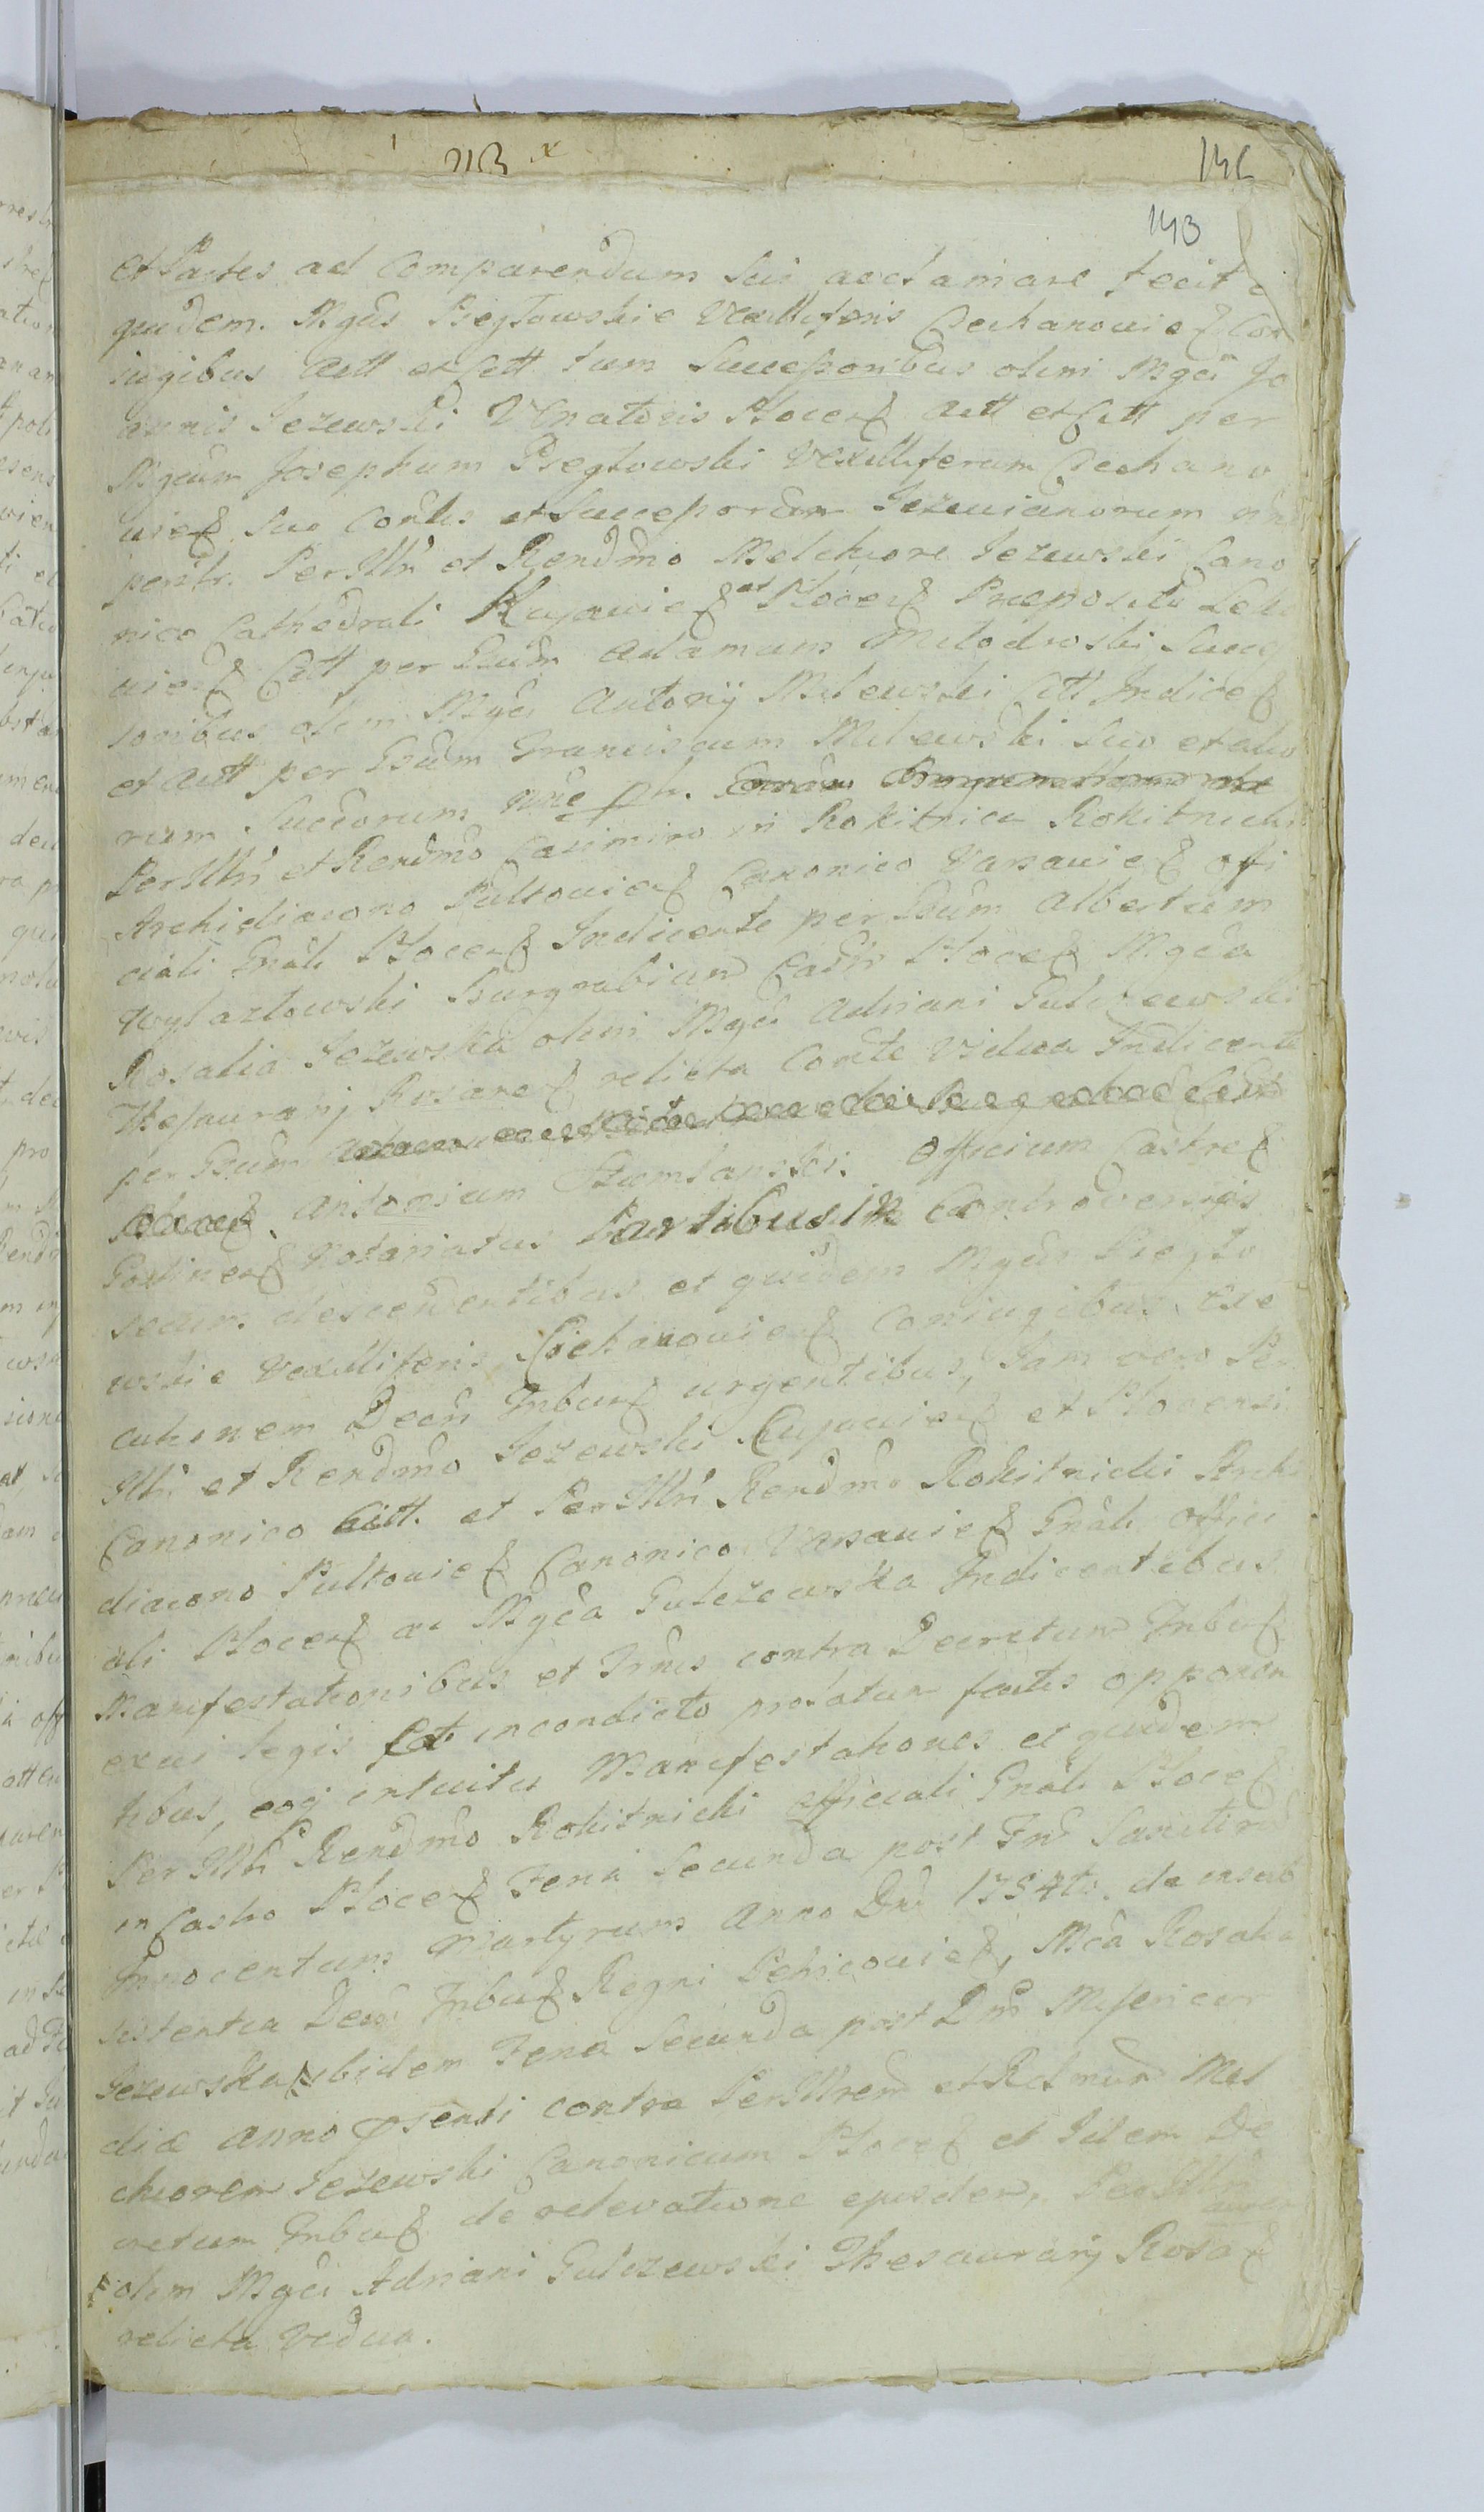 NB x
146
143
et Partes ad Comparendum sui acclamare fecit
quidem. Mgcis Pręgłowskie Vexilliferis Ciechanovien Con
iugibus Actt et Citt tum Succeporibus olim Mgci Jo
annis Jezewski Venatoris Plocen Actt et Citt per
Mgcum Josephum Pregłowski Vexilliferum Ciechano
vien suo Contlis et Succeporum Jezevianorum nne
pentr. Per Illri et Rendmo Melchiore Jezewski Cano
nico Cathedrali Kujavien et Plocen Preposito
vien Citt per Gsum Adamum Młodroski Succe
soribus olim Mgci Antonij Milewski Citt Indicen
et Actt per Gsum Franciscum Milewski suo et alio
rum Succorum nne ph.
Per Illri et Rendmo Casimiro in Rokitnica Rokitnicki
Archidiacono Pultovien Canonico Varsavien Offi
ciali Gnali Plocen Indicente per Gsum Albertum
Wylazłowski Burgrabium Castr Plocen Mgca
Rosalia Jezewska olim Mgci Adriani Gulczewski
Thesaurarij Rosanen relicta Conte Vidua Indicente
per Gsum
Antonium Szumlanski. Officium Castren
Gostinen Notariatus Partibus in Controversijs
secum descendentibus et quidem Mgcis Pregło
wskie Vexilliferis Ciechanovien Coniugibus Exe
cutionem Decri Tribun urgentibus, Jam vero Per
Illri et Rendmo Jezewski Cujavien et Plocensi
Canonico Citt. et Per Illri Rendmo Rokitnicki Archi
diacono Pultovien Canonico Varsavien Gnali Offici
ali Plocen ac Mgca Gulczewska Indicentibus
Manifestationibus et Irnis contra Decretum Tribun
ex vi legis Et incondicto prolatum factis opponen
tibus, eoq intuitu Manifestationes et quidem
Per Illri Rendmo Rokitnicki Officiali Gnali Plocen
in Castro Plocen Feria Secunda post Fm Sanctorum
Innocentum Martyrum Anno Dni 1754to. de insub
sistentia Decri Tribun Regni Petricovien, Mca Rosalia
Jezewska ibidem Feria Secunda post Dnm Misericor
diæ anno psenti contra Per Illrem et Rdmum Mel
chiorem Jezewski Canonicum Plocen et Idem De
cretum Tribun de relevatione ejusdem, Per Illri
olim Mgci Adriani Gulczewski Thesaurarij Rosan
relicta Vidua.